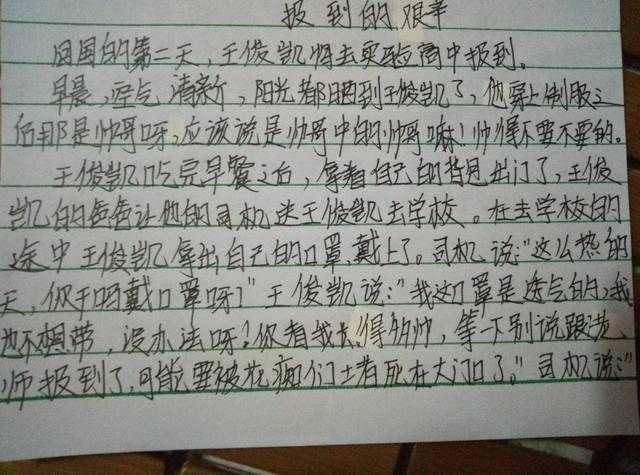 报到的艰辛
回国的第二天，王俊凯将去实验高中报到。
早晨，空气清新，阳光都晒到王俊凯了，他穿上制服之
后那是帅哥呀，应该说是帅哥中的帅哥嘛！帅得不要不要的。
王俊凯吃完早餐之后，拿着自己的背包出门了，王俊
凯的爸爸让他的司机送王俊凯去学校。在去学校的
途中王俊凯拿出自己的口罩，戴上了。司机说：“这么热的
天，你干吗戴口罩呀？”王俊凯说：“我这口罩是透气的，我
也不想带，没办法呀？你看我长得多帅，等一下别说跟老
师报到了，可能要被花痴们堵死在大门口了。”司机说：“